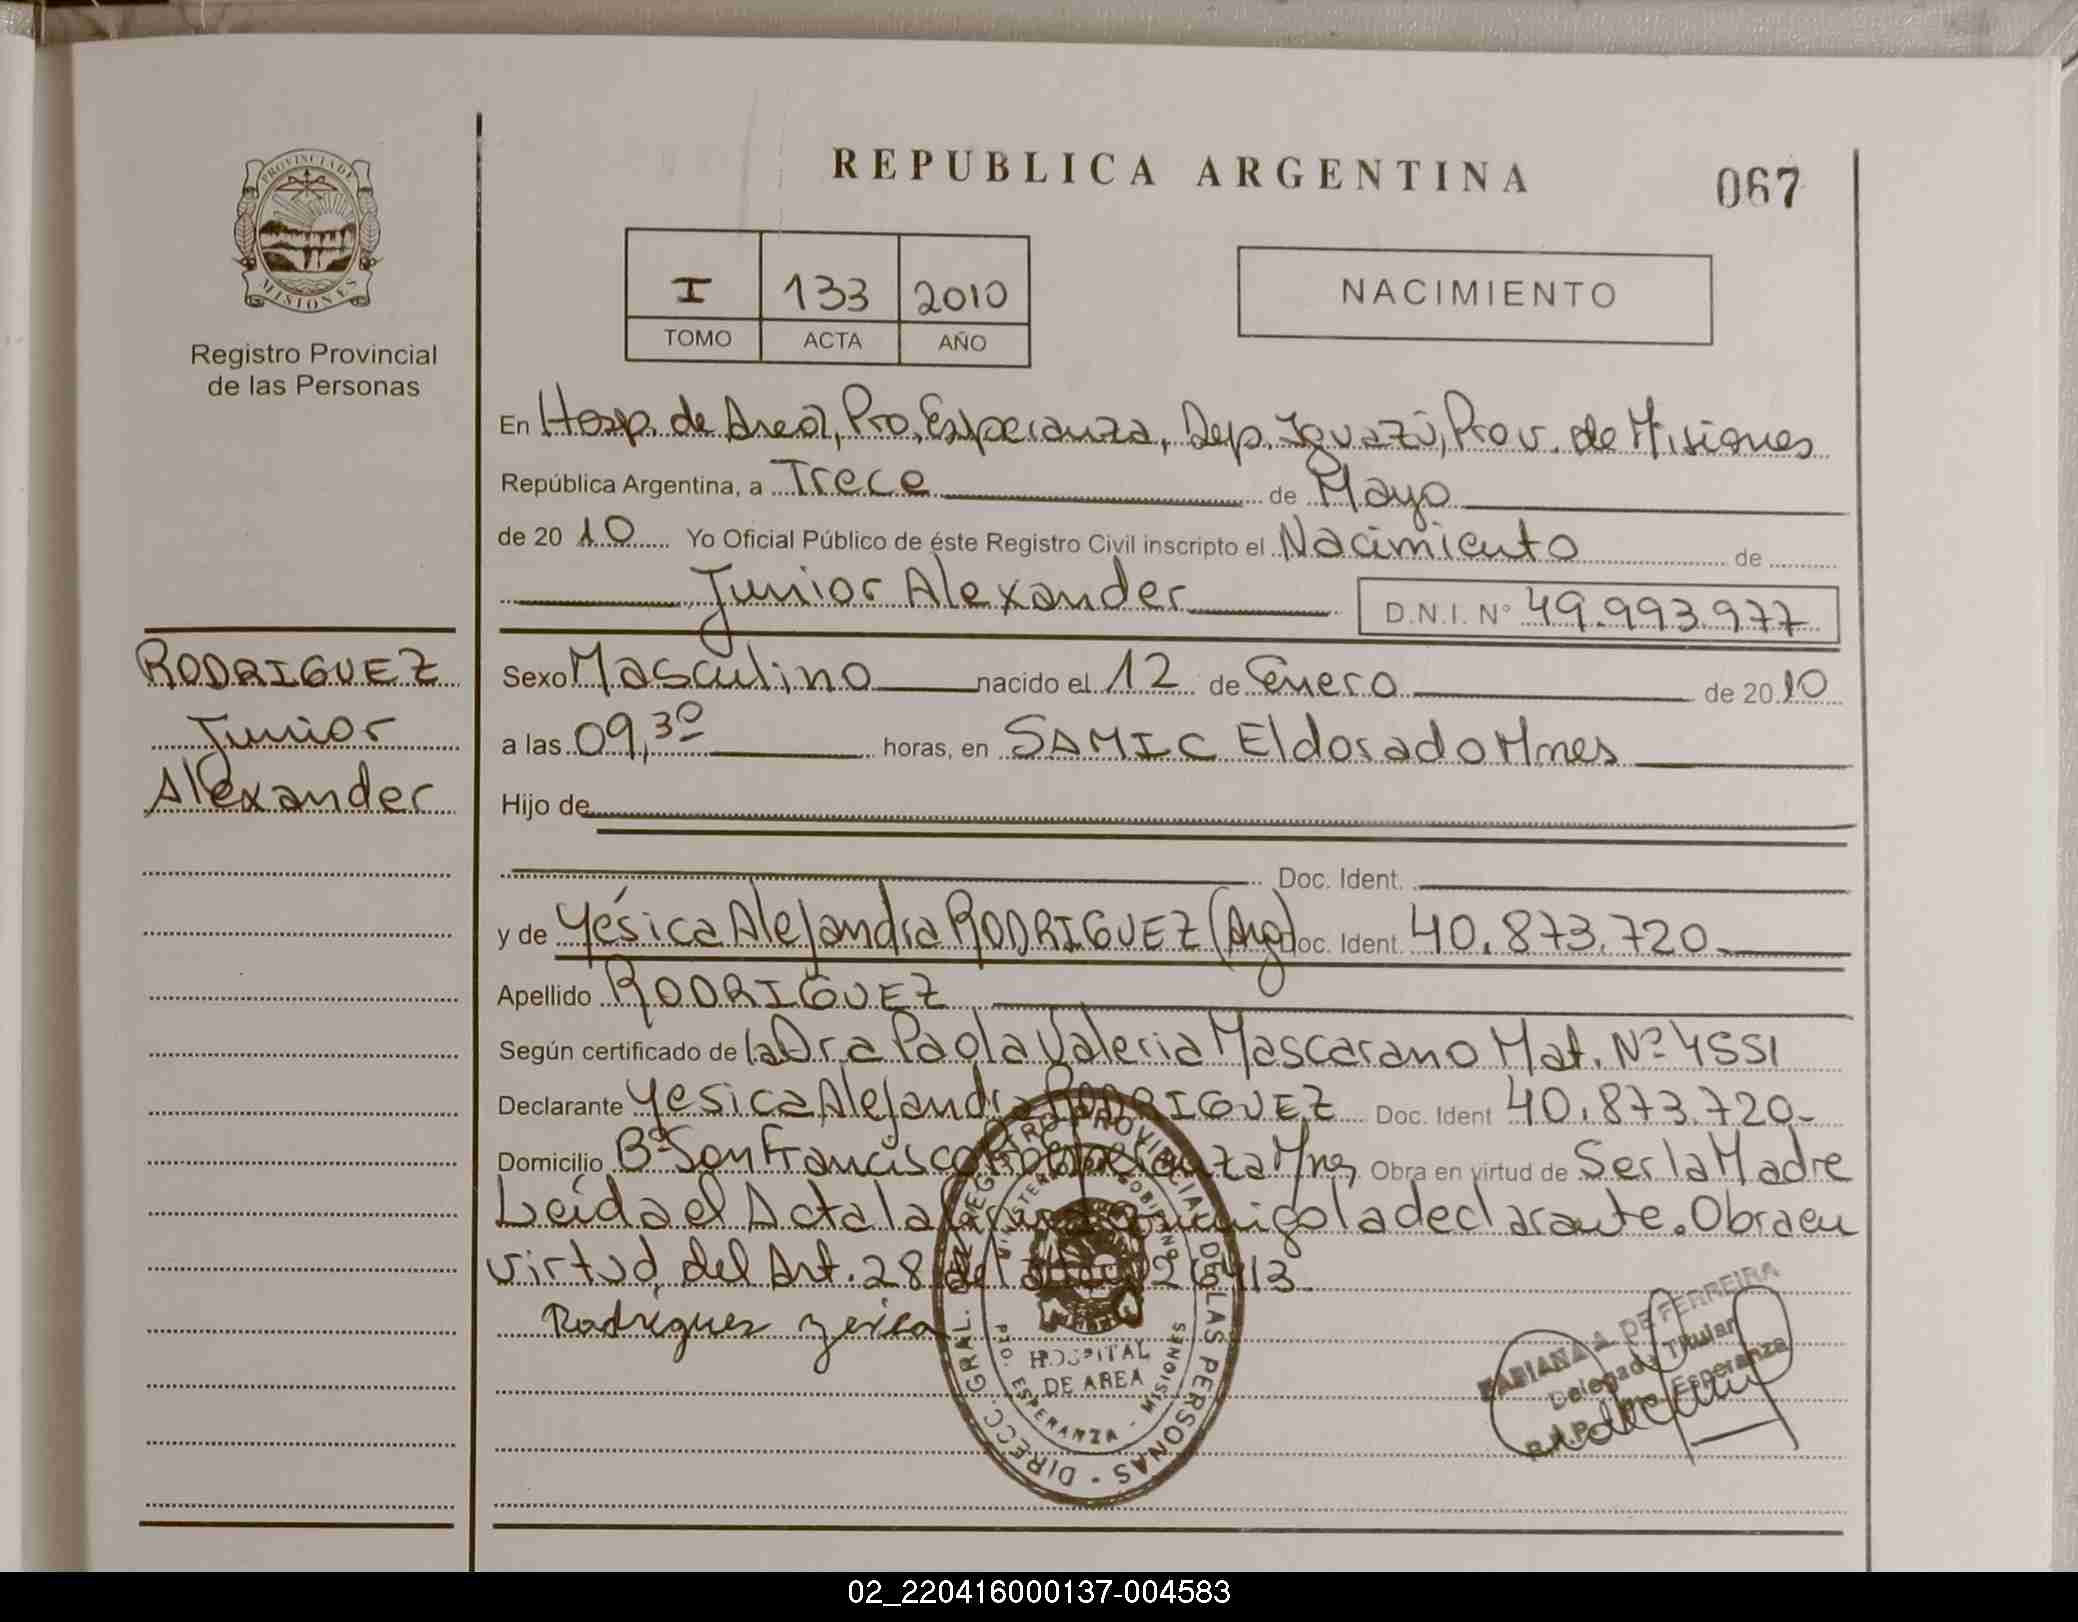 PROVINCIA DE
MISIONES
Registro Provincial
de las Personas
RODRIGUEZ
Junior
Alexander
REPUBLICA ARGENTINA
067
I 133 2010
TOMO ACTA AÑO
NACIMIENTO
En Hosp. de Area, Pto. Esperanza, Dep. Iguazú, Prov. de Misiones
República Argentina, a Trece de Mayo
de 2010 Yo Oficial Público de éste Registro Civil inscripto el Nacimiento de
Junior Alexander D.N.I. N° 49.993.977
Sexo Masculino nacido el 12 de Enero de 2010
a las 09,30 horas, en SAMIC Eldorado Mnes
Hijo de
Doc. Ident.
y de Yésica Alejandra RODRIGUEZ (Arg) Doc. Ident. 40.873.720
Apellido RODRIGUEZ
Según certificado de la Dra Paola Valeria Mascarano Mat. Nº 4551
Declarante Yesica Alejandra RODRIGUEZ Doc. Ident 40.873.720-
Domicilio Bº San Francisco Pto Esperanza Mnes Obra en virtud de Ser la Madre
Leída el Acta la firma conmigo la declarante. Obra en
virtud, del Art. 28 de la 26413
Rodriguez Yesica
DIRECC. GRAL. DE REGISTRO PROVINCIAL DE LAS PERSONAS
MINISTERIO DE GOBIERNO
HOSPITAL
DE AREA
PTO. ESPERANZA - MISIONES
FABIANA A. DE FERREIRA
Delegada Titular
R.P.P. Pto. Esperanza
02_220416000137-004583